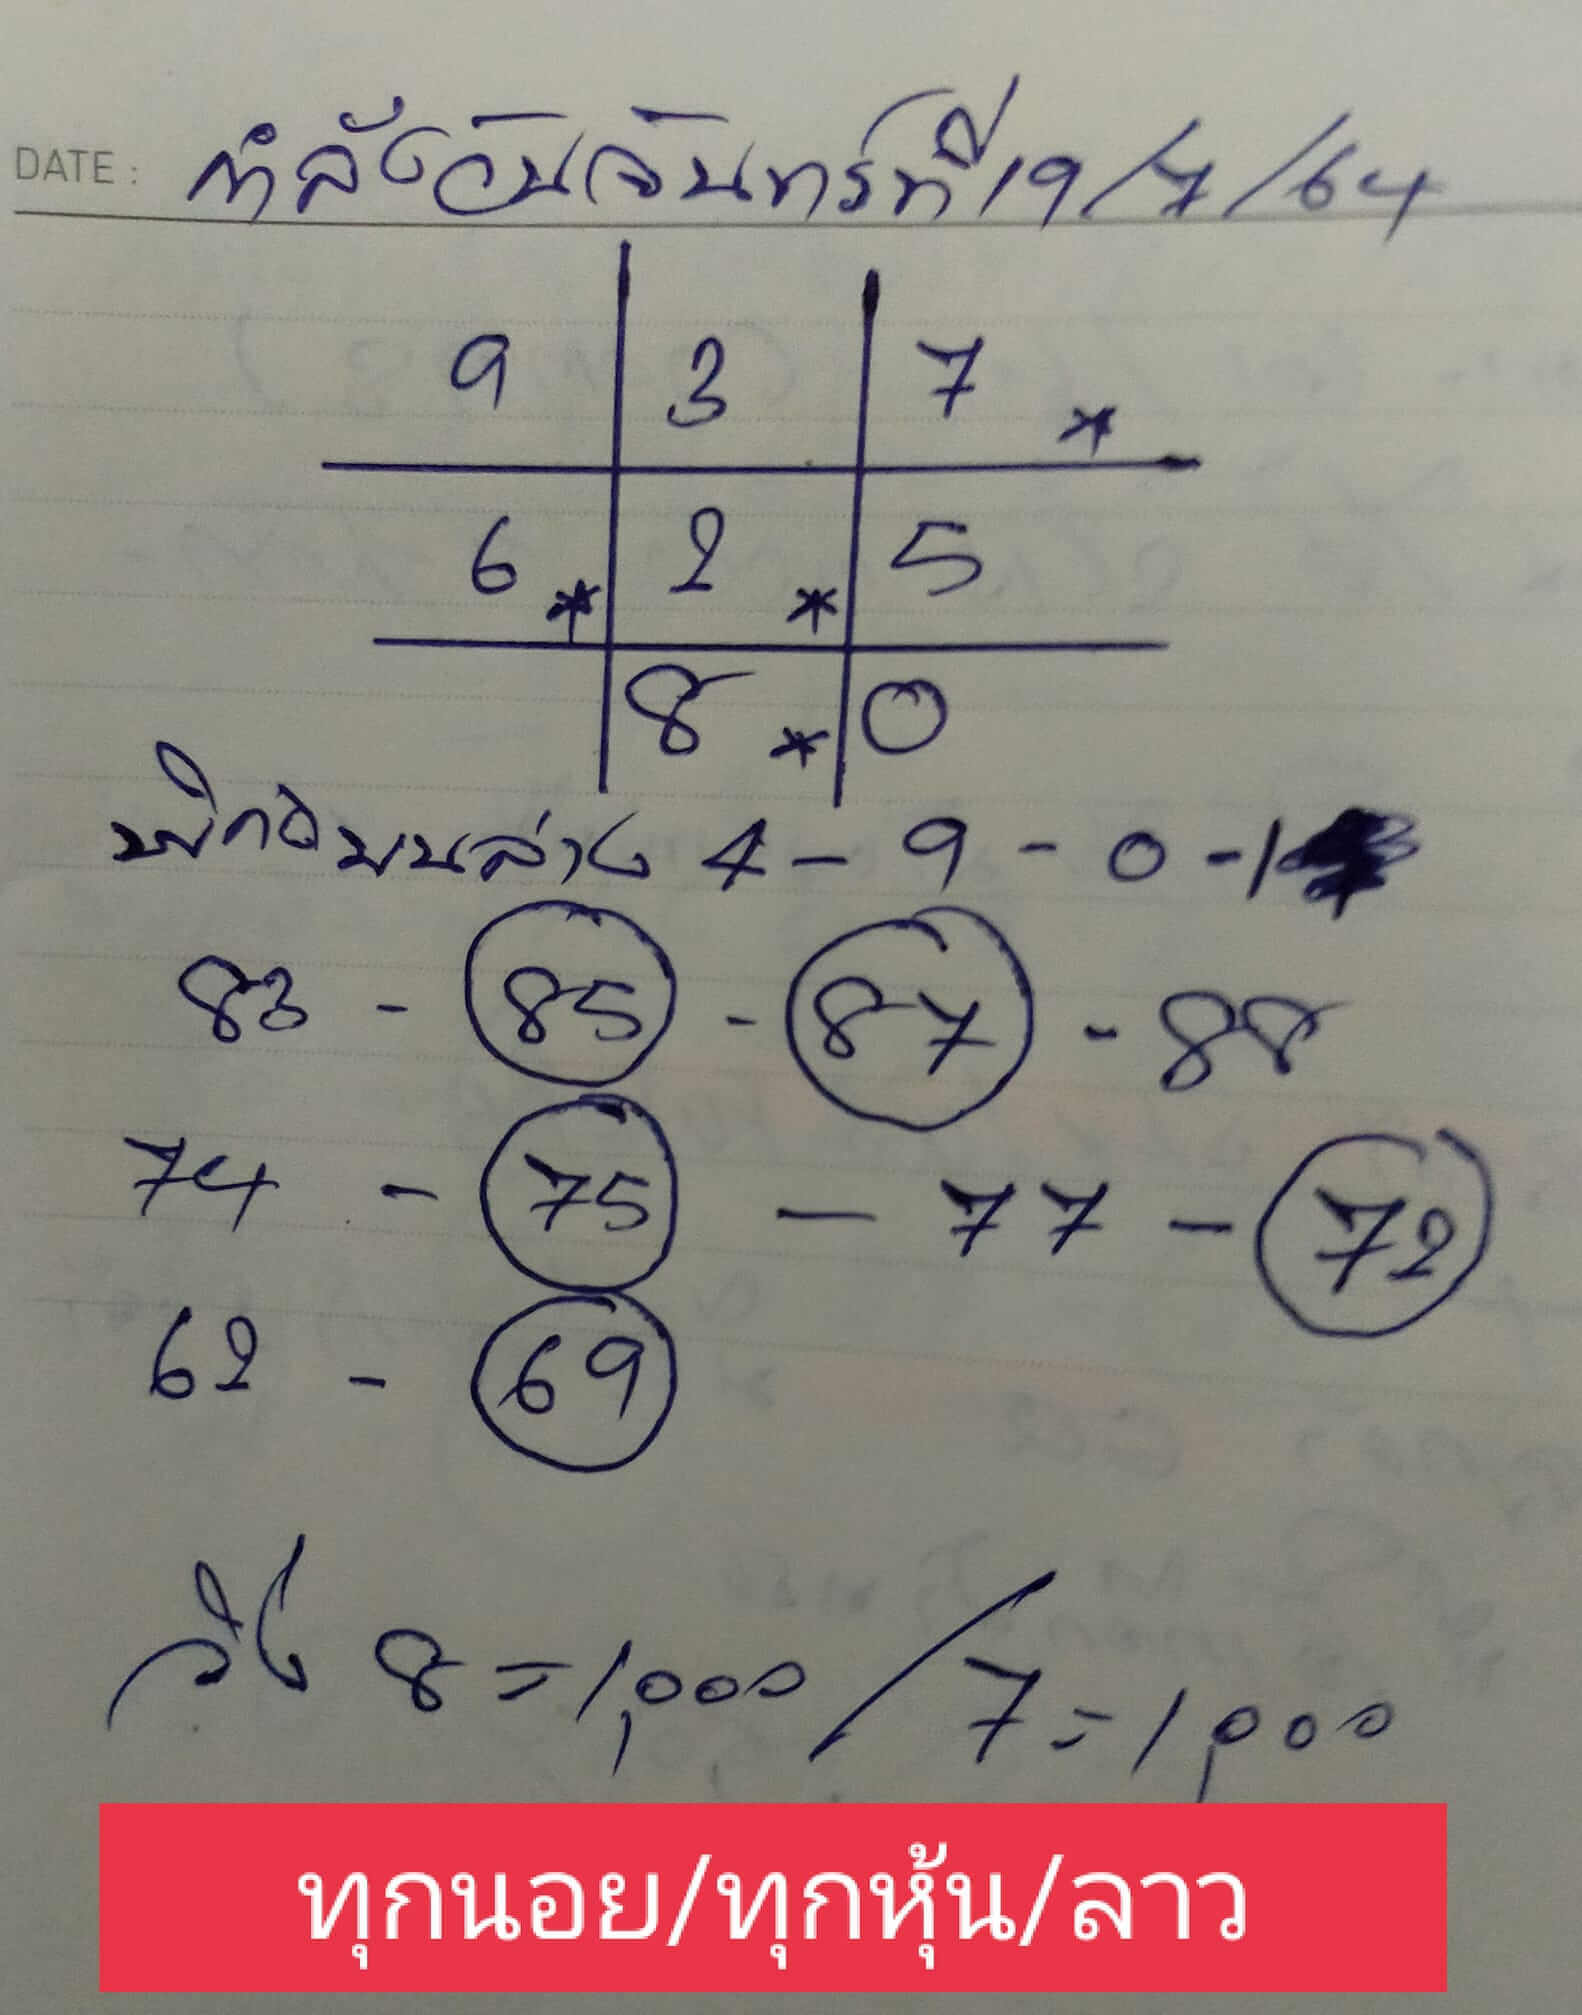 DATE: กำลังวันจันทร์ที่ 19/7/64
9 3 7 *
6 * 2 * 5
8 * 0
พิกัดบนล่าง 4 - 9 - 0 - 1
83 - 85 - 87 - 88
74 - 75 - 77 - 72
62 - 69
วิ่ง 8 = 1,000 / 7 = 1,000
ทุกนอย/ทุกหุ้น/ลาว